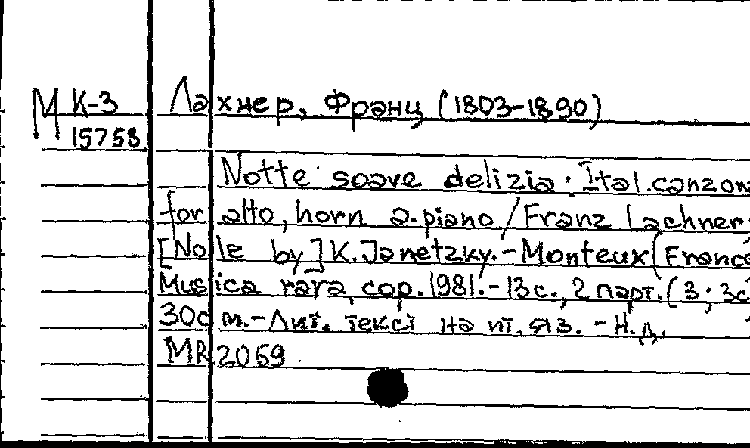 М К-3 Лахнер, Франц (1803-1890)
15758
Notte soave delizia. Ital. canzon
for alto, horn a. piano / Franz Lachner
[No le by] K. Janetzky. - Monteux (France
Musica rara, cop. 1981. - 13 с., 2 парт. (3; 3с
30с м. - Лит. текст на ит. яз. - Н. д.
MR 2069